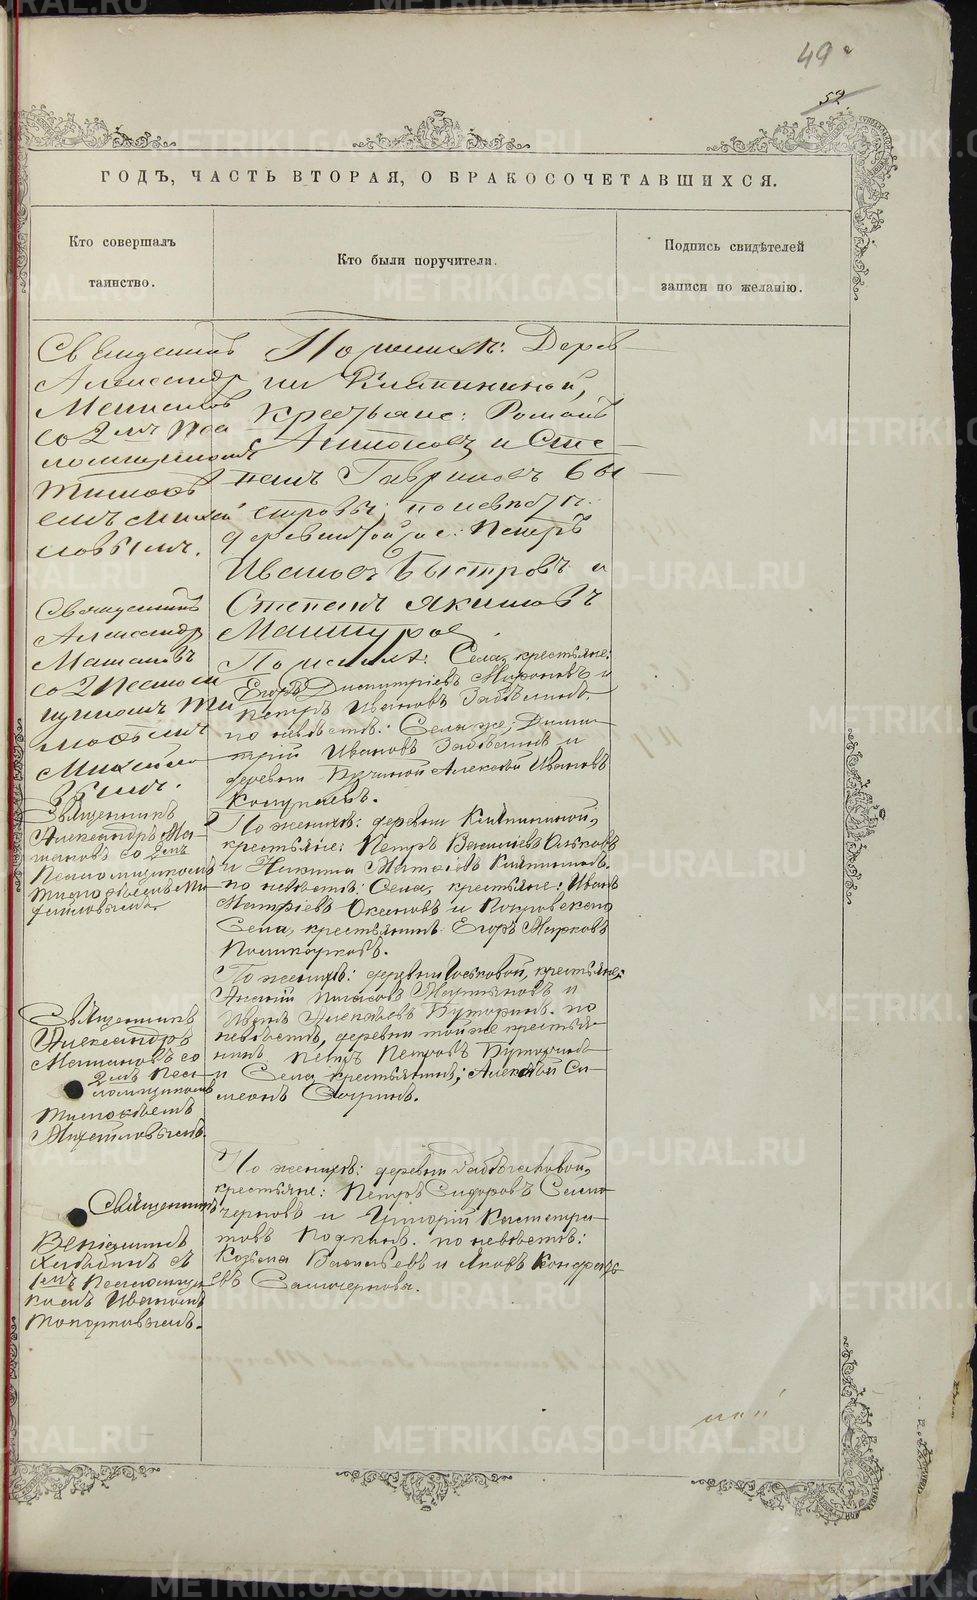 49
52.
ГОДЪ, ЧАСТЬ ВТОРАЯ, О БРАКОСОЧЕТАВШИХСЯ.
Кто совершалъ
таинство.
Кто были поручители.
Подпись свидѣтелей
записи по желанію.
Священникъ
Александр
Машановъ
со 2мъ Пса
ломщикомъ
Тимоѳе
емъ Михай
ловымъ.
По женихѣ: Дерев
ни Кляпининой,
крестьяне: Романъ
Антоновъ и Сте
панъ Гавриловъ Бы
стровы; по невѣстѣ:
деревни той же: Петръ
Ивановъ Быстровъ и
Степанъ Якимовъ
Машуров.
Священникъ
Александр
Машановъ
со 2 Псалом
щикомъ Ти
моѳеемъ
Михайло
вымъ.
По женихѣ: Села, крестьяне:
Егоръ Димитріевъ Мироновъ и
Петръ Ивановъ
по невѣстѣ: Села же; Дими
трій Ивановъ и
деревни Алексѣй Ивановъ
Священникъ
Александръ Ма
шановъ со 2мъ
Псаломщикомъ
Тимоѳеемъ Ми
хайловымъ.
По женихѣ: деревни Кляпининой,
крестьяне: Петръ Васильевъ
и Никита Кляпининъ.
по невѣстѣ: Села, крестьяне: Иванъ
и Покровскаго
Села, крестьянинъ Егоръ Марковъ
Поликарповъ.
Священникъ
Александръ
Машановъ со
2мъ Пса
ломщикомъ
Тимоѳеемъ
Михайловымъ.
По женихѣ: деревни крестьяне:
Мартьяновъ и
Иванъ Алексѣевъ Буторинъ. по
невѣстѣ, деревни той же крестья
нинъ Петръ Петровъ Буторинъ
и Села крестьянинъ; Алексѣй Си
меонъ
Священникъ
Веніаминъ
съ
1мъ Псаломщи
комъ Иваномъ
Топорковымъ.
По женихѣ: деревни
крестьяне: Петръ Сидоровъ Само
черновъ и Григорій
по невѣстѣ:
Козьма Васильевъ и Яковъ Кондрать
евъ Самочерновы.
май
METRIKI.GASO-URAL.RU